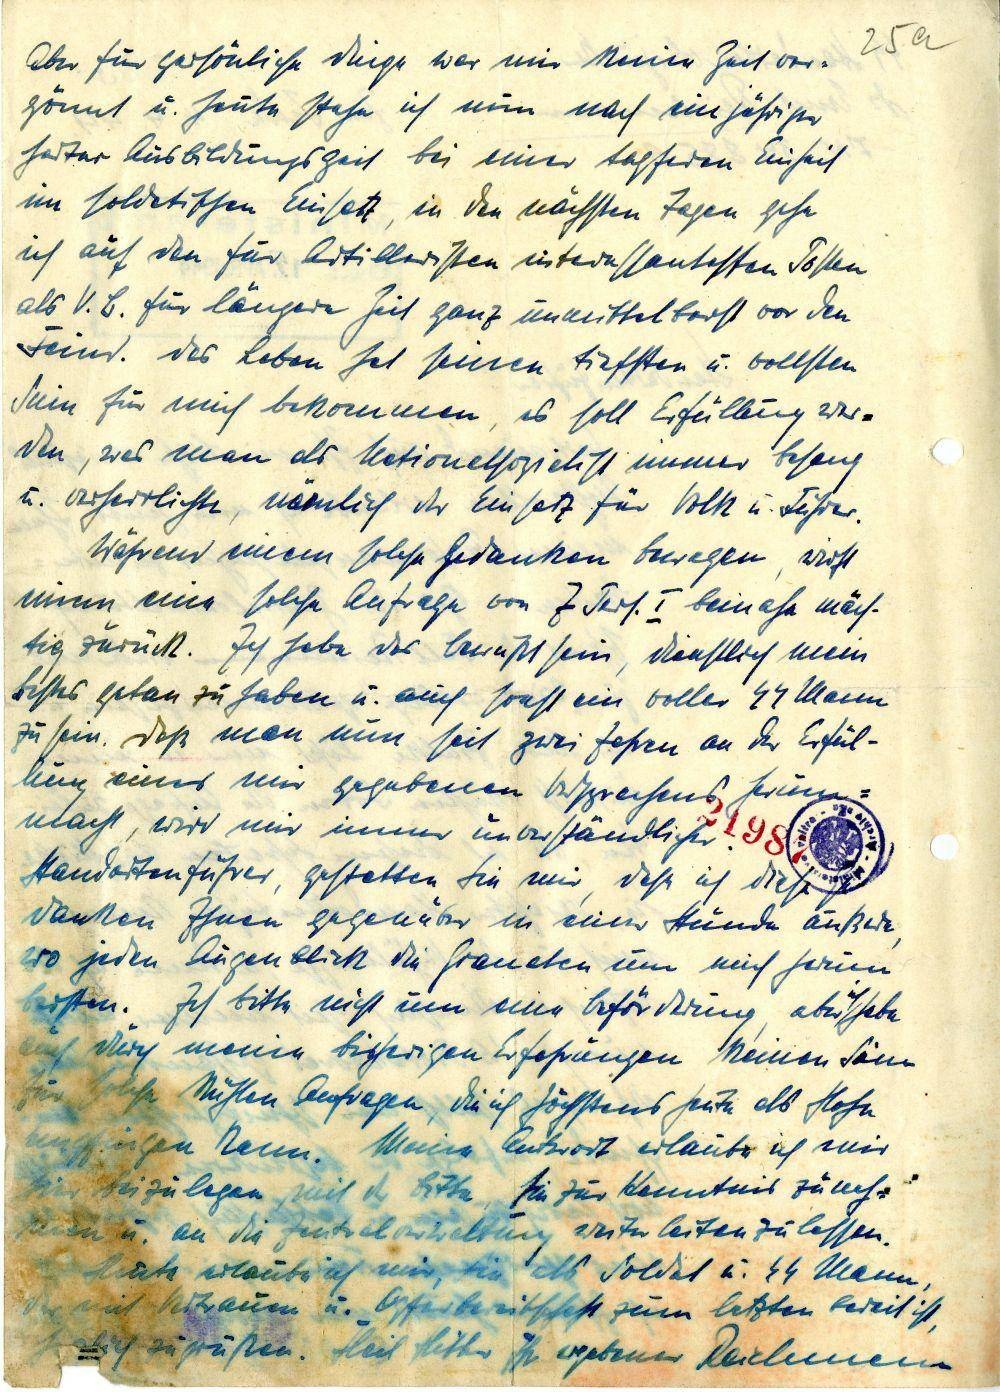 25a
Aber für persönliche Dinge war mir keine Zeit ver=
gönnt u. heute stehe ich nun nach einjähriger
harter Ausbildungszeit bei einer tapferen Einheit
im soldatischen Einsatz, in den nächsten Tagen gehe
ich auf den für Artilleristen interessantesten Posten
als V.B. für längere Zeit ganz unmittelbar vor den
Feind. Das Leben hat seinen tiefsten u. vollsten
Sinn für mich bekommen, es soll Erfüllung wer=
den, was man als Nationalsozialist immer besang
u. verherrlichte, nämlich der Einsatz für Volk u. Führer.
Während einem solche Gedanken bewegen, wirft
einem eine solche Anfrage von Z Pers. I beinahe mäch-
tig zurück. Ich habe das Bewußtsein, dienstlich mein
bestes getan zu haben u. auch sonst ein voller SS Mann
zu sein. Daß man nun seit zwei Jahren an der Erfül-
lung eines mir gegebenen Versprechens herum=
macht, wird mir immer unverständlicher.
2198
Ministerstwo - Archiwa
Standartenführer, gestatten Sie mir, daß ich diese Ge
danken Ihnen gegenüber in einer Stunde äußere,
wo jeden Augenblick die Granaten um mich herum
bersten. Ich bitte nicht um eine Beförderung, aber habe
auch durch meine bisherigen Erfahrungen keinen Sinn
für solche kühlen Anfragen, die ich höchstens heute als Hohn
empfingen kann. Meine Antwort erlaube ich mir
hier beizulegen mit der Bitte, sie zur Kenntnis zu neh=
men u. an die Zentralverwaltung weiterleiten zu lassen.
Heute erlaube ich mir, Sie als Soldat u. SS Mann,
der mit Vertrauen u. Opferbereitschaft zum letzten bereit ist,
herzlich zu grüßen. Heil Hitler Ihr ergebener Reichmann